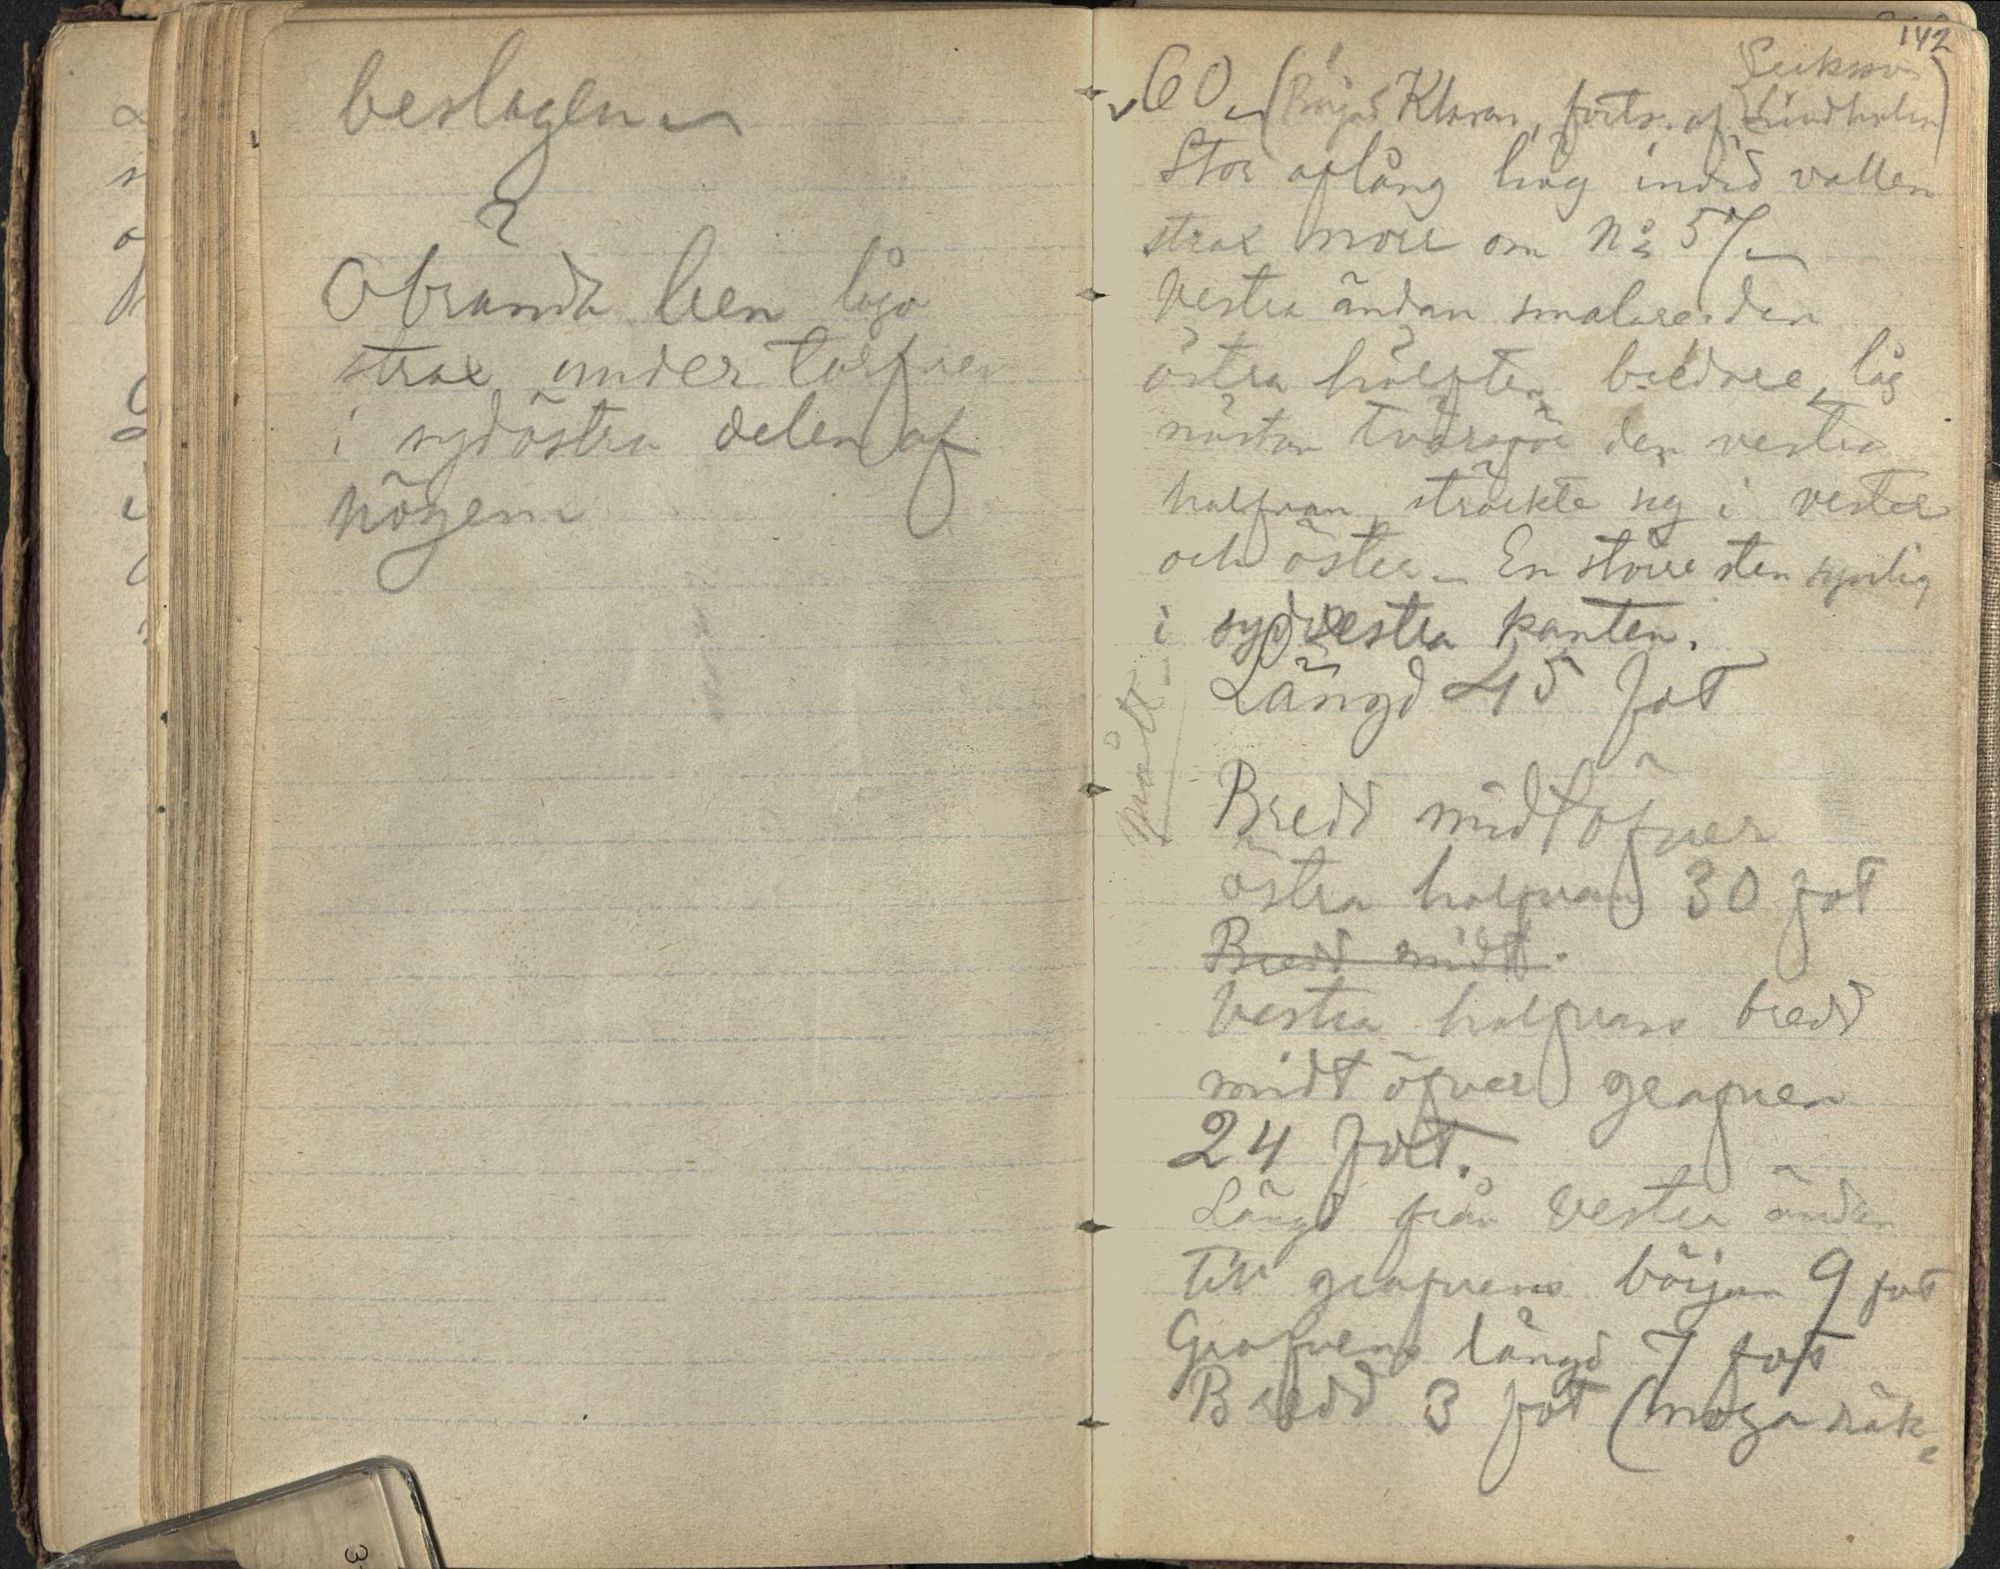 beslagen
2
Obrända ben låga
strax under torfven
i sydöstra delen af
högen
142
Eriksson
60 (Började Klaras, forts. af Lindholm)
Stor aflång hög invid vallen
strax norr om No 57
Vestra ändan smalare, den
östra hälften bredare, låg
nästan tvärsför den vestra
halfvan, sträckte sig i vester
och öster. En större sten synlig
i sydvestra kanten.
Längd 45 fot
mått
Bredd midtöfver
östra halfvan 30 fot
Bredd midt
Vestra halfvans bredd
midt öfver grafven
24 fot.
Längd från vestra ändan
till grafvens början 9 fot
Grafvens längd 7 fot
Bredd 3 fot (noga räk-